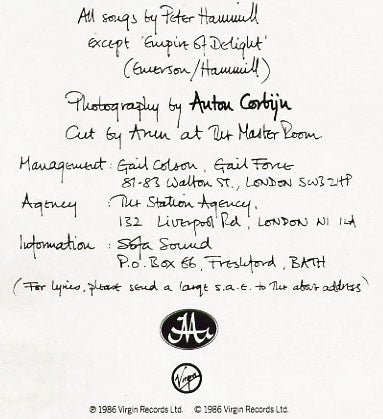 All songs by Peter Hammill
except 'Empire of Delight'
(Emerson/Hammill)
Photography by Anton Corbijn
Cut by Arun at The Master Room
Management: Gail Colson, Gail Force
81-83 Walton St., LONDON SW3 2HP
Agency : The Station Agency,
132 Liverpool Rd, LONDON N1 1LA
Information : Sofa Sound
P.O. Box 66, Freshford, BATH
(For lyrics, please send a large s.a.e. to the above address)
Virgin
℗ 1986 Virgin Records Ltd. © 1986 Virgin Records Ltd.